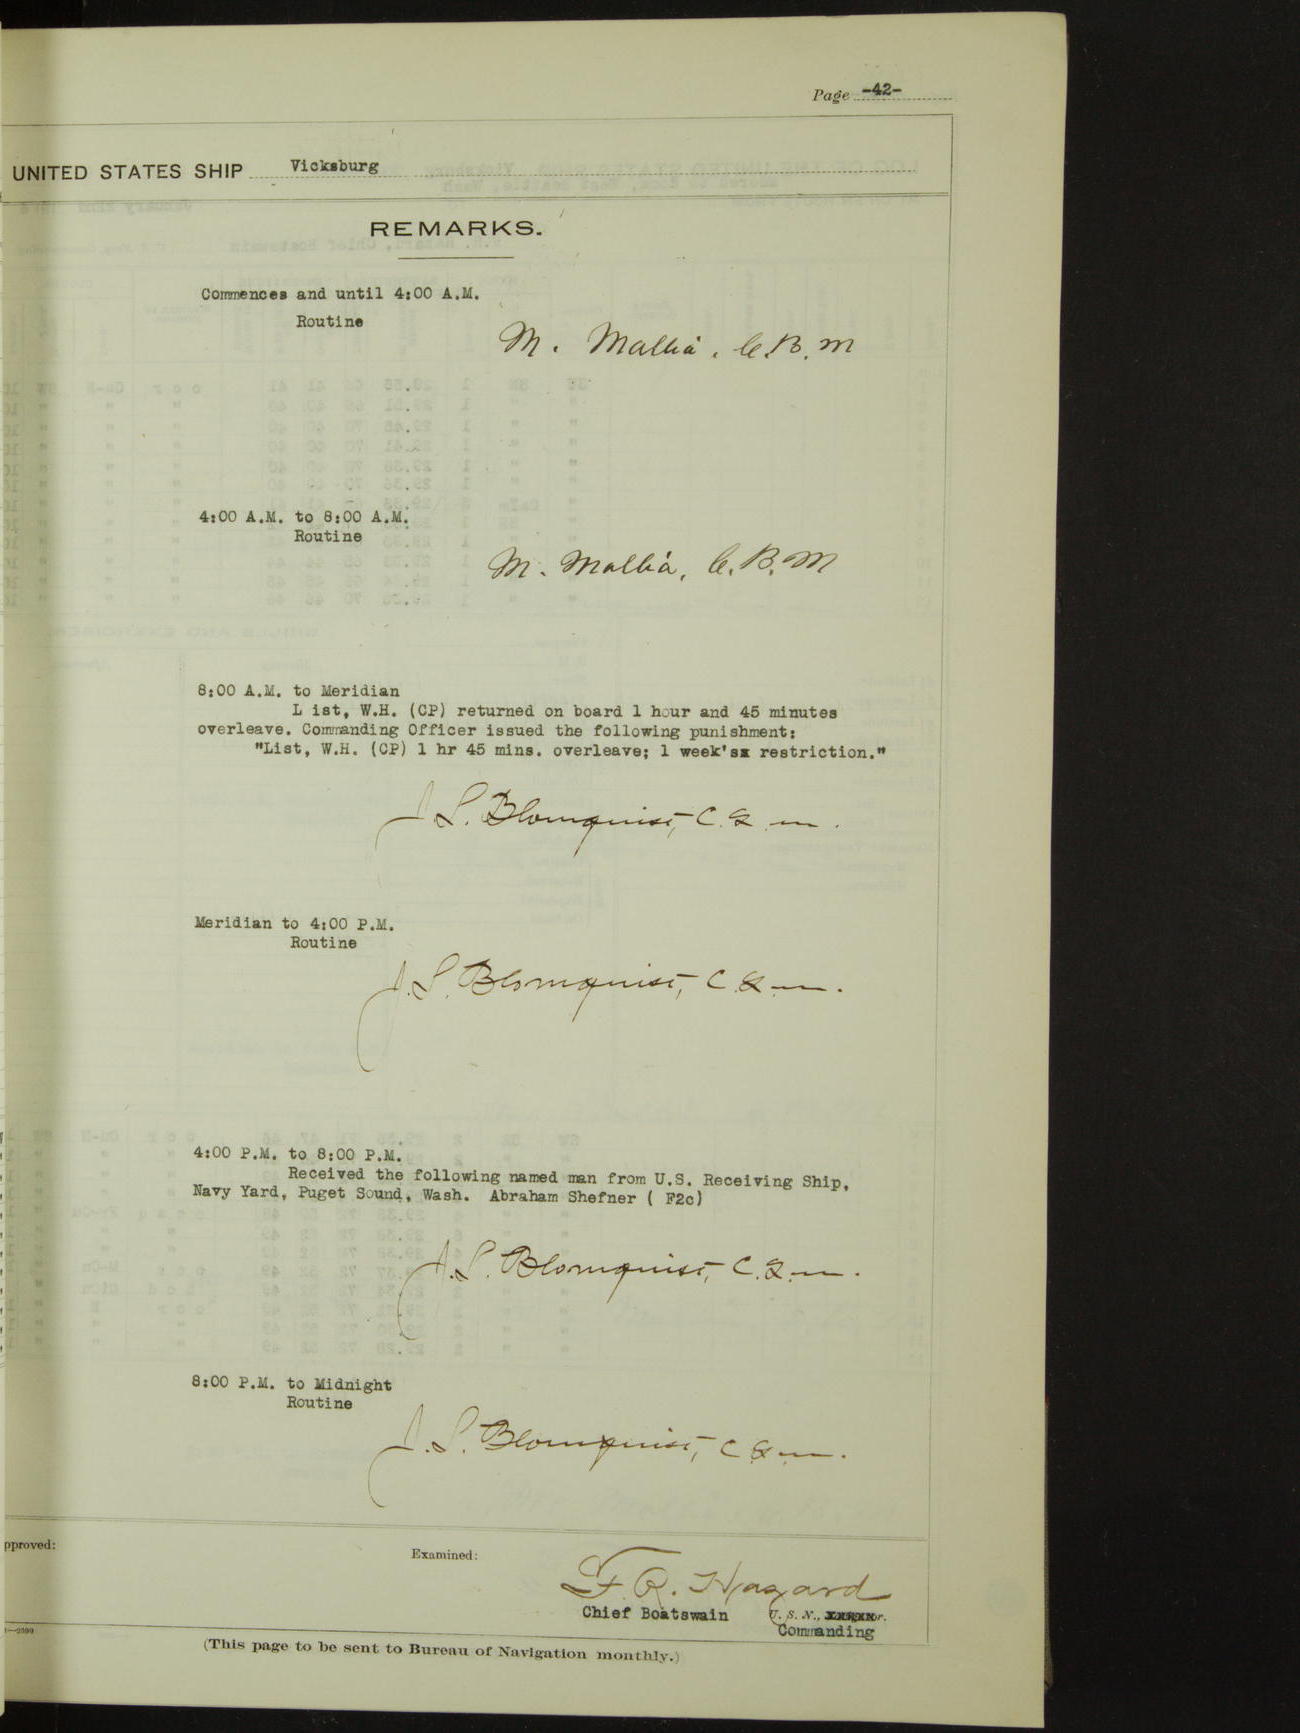 Page -42-
UNITED STATES SHIP Vicksburg
REMARKS.
Commences and until 4:00 A.M.
Routine
M. Mallia, C.B.M
4:00 A.M. to 8:00 A.M.
Routine
M. Mallia, C.B.M
8:00 A.M. to Meridian
L ist, W.H. (CP) returned on board 1 hour and 45 minutes
overleave. Commanding Officer issued the following punishment:
"List, W.H. (CP) 1 hr 45 mins. overleave; 1 week'sx restriction."
J.S. Blomquist, C.G.m.
Meridian to 4:00 P.M.
Routine
J.S. Blomquist, C.G.m.
4:00 P.M. to 8:00 P.M.
Received the following named man from U.S. Receiving Ship,
Navy Yard, Puget Sound, Wash. Abraham Shefner ( F2c)
J.S. Blomquist, C.G.m.
8:00 P.M. to Midnight
Routine
J.S. Blomquist, C.G.m.
pproved:
Examined:
F.R. Hazard
Chief Boatswain U. S. N.,
Commanding
—2399
(This page to be sent to Bureau of Navigation monthly.)